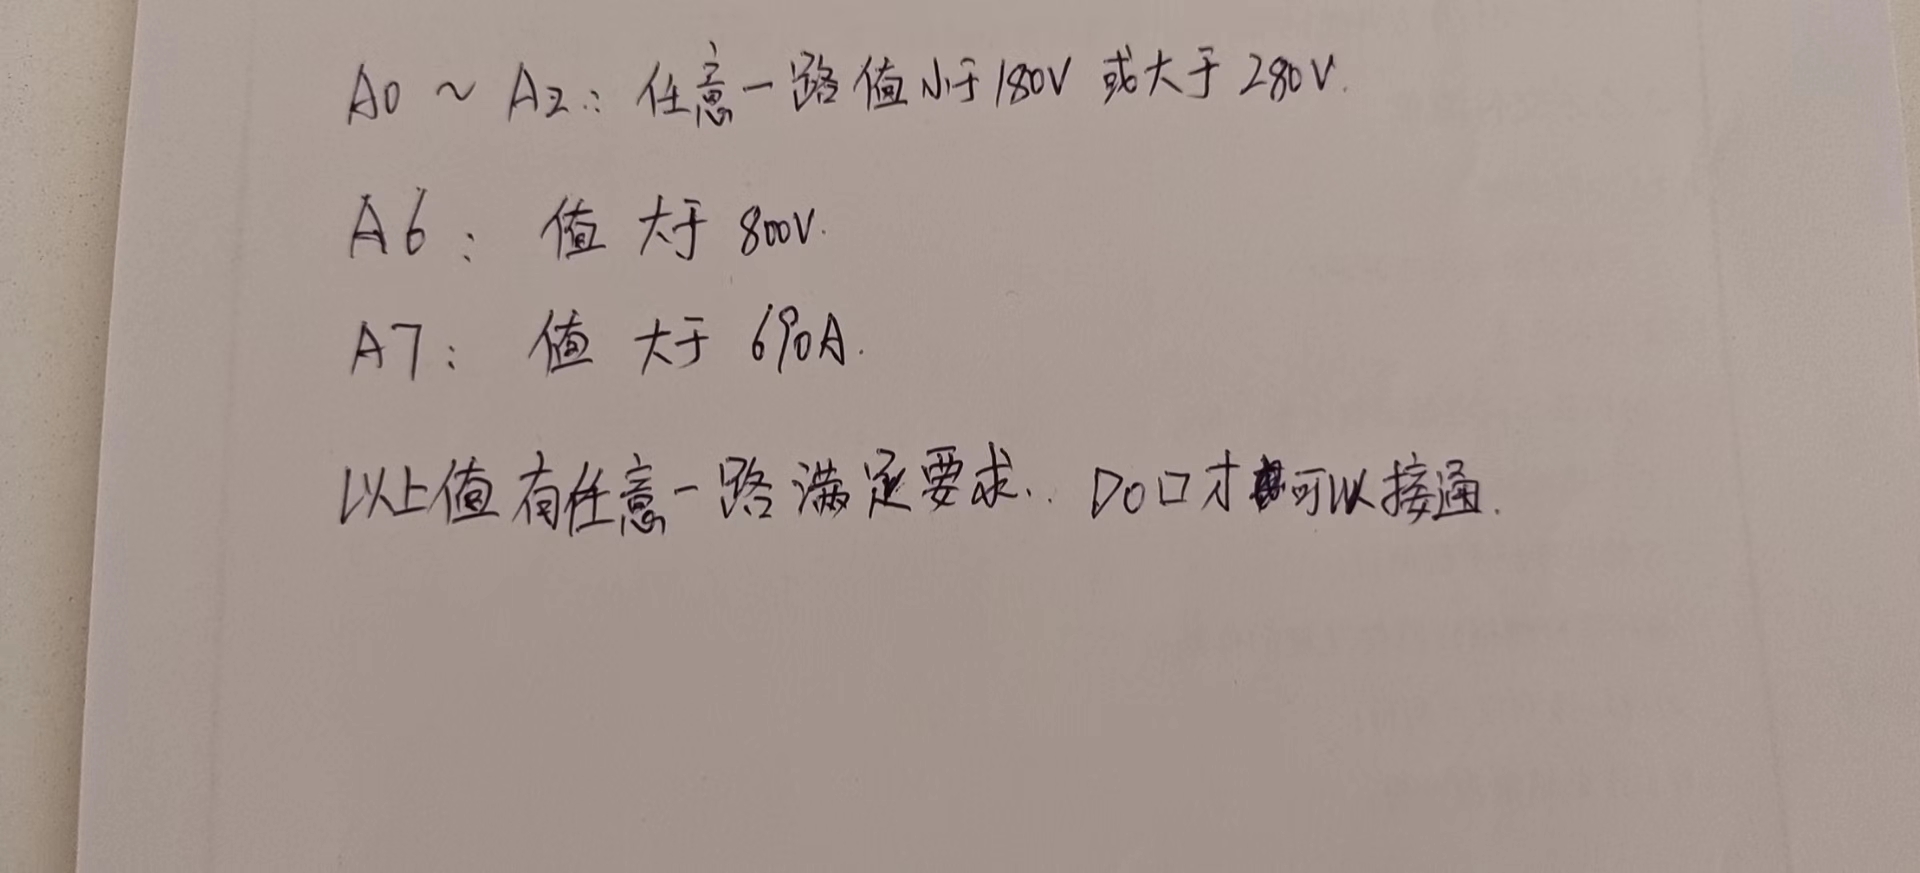 A0 ~ A2: 任意一路值小于180V 或大于280V.
A6: 值 大于 800V.
A7: 值 大于 690A.
以上值有任意一路满足要求.. DO口才可以接通.